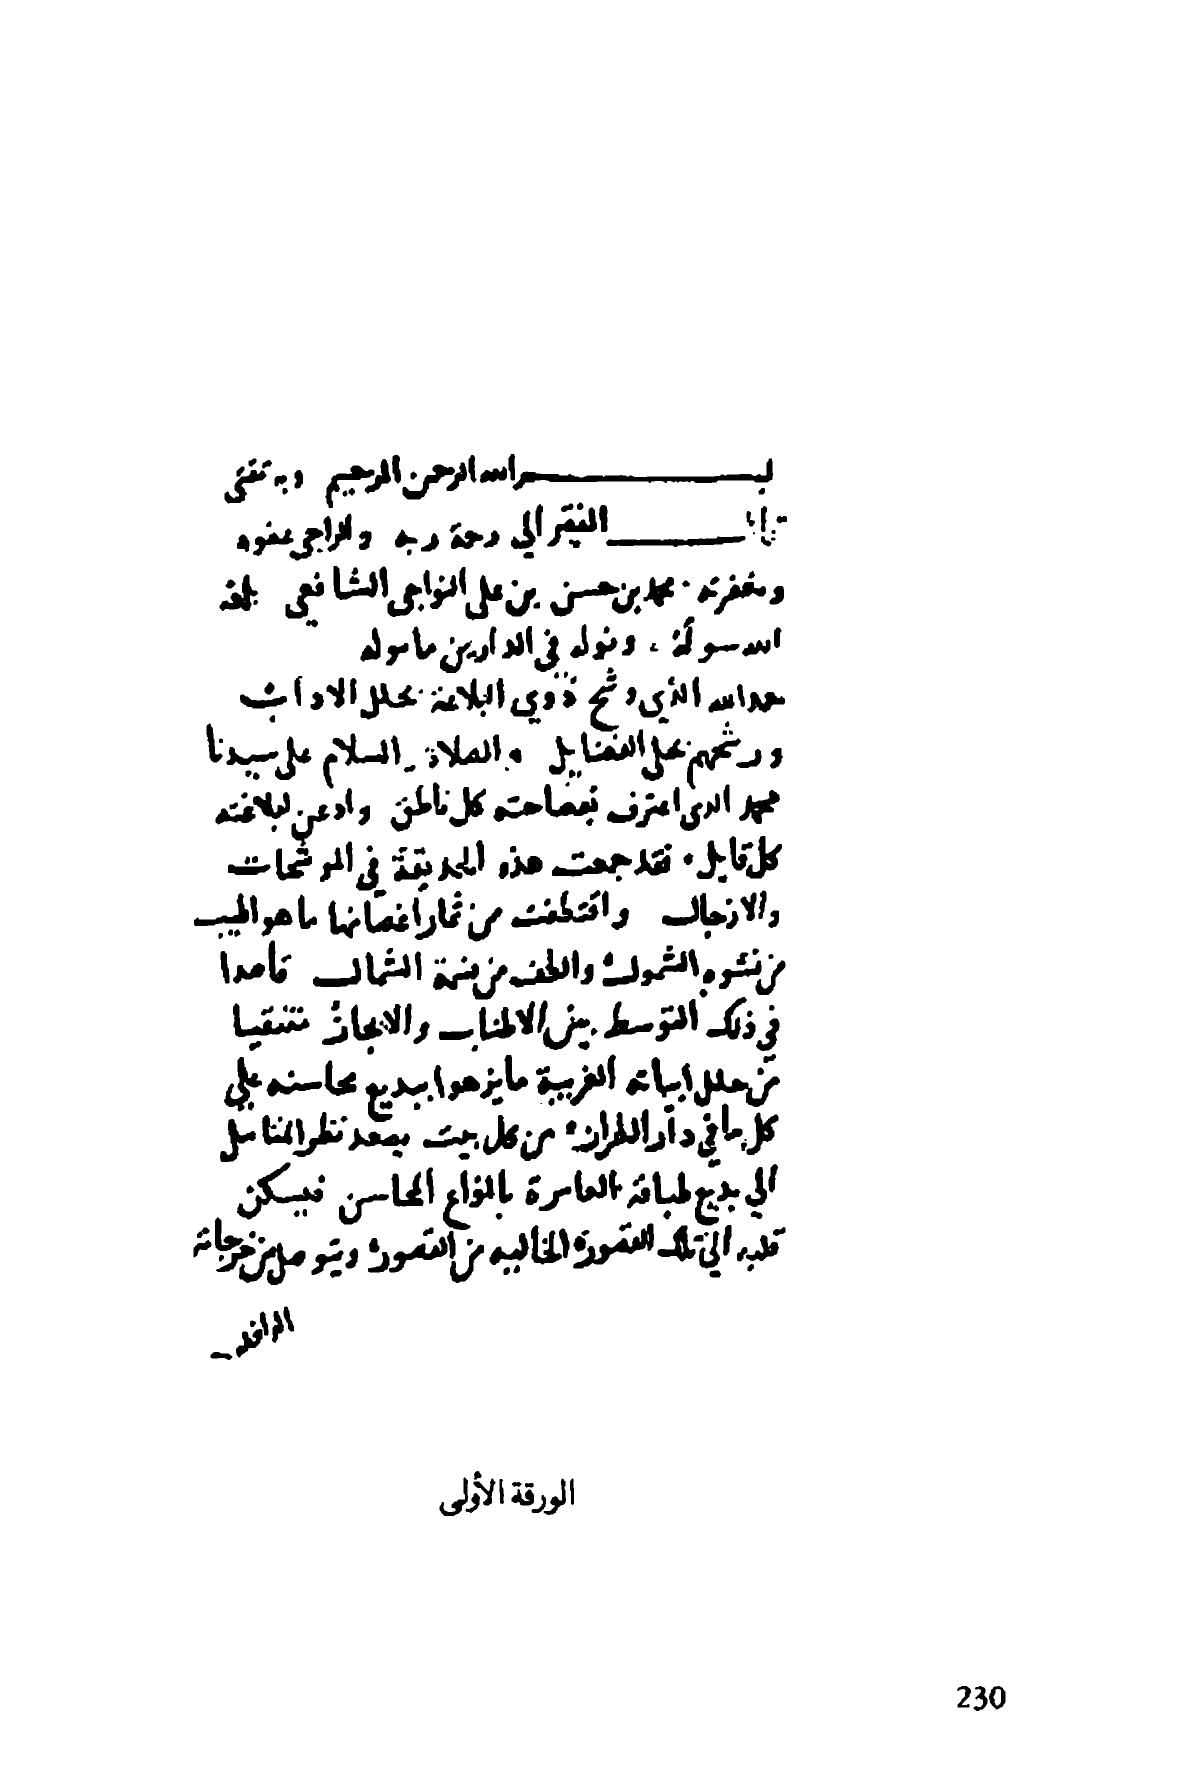 بسم الله الرحمن الرحيم وبه ثقتي
قال الفقير الى رحمة ربه والراجى عفوه
ومغفرته محمد بن حسن بن على النواجى الشافعي بلغه
الله سوله ونوله في الدارين ماموله
حمد الله الذي وشح ذوي البلاغة بحلل الاداب
ورشحهم بحلى الفضايل والصلاة والسلام على سيدنا
محمد الدى اعترف بفصاحته كل ناطق وادعن لبلاغته
كل قايل فقد جمعت هذه الحديقة في الموشحات
والازجال واقتطفت من ثمار اغصانها ما هو اطيب
من نشوه الشمول والطف من نسمة الشمال قاصدا
في ذلك التوسط بين الاطناب والايجاز منتقيا
من حلل ابياته الغريبة ما يزهوا ببديع محاسنه علي
كل ما في دار الطراز من كل بيت يصعد نظر المتامل
الي بديع طباقه العامرة بانواع المحاسن فيسكن
قلبه الي تلك القصورة الخاليه من القصور ويتوصل من خرجاته
الورقة الأولى
230